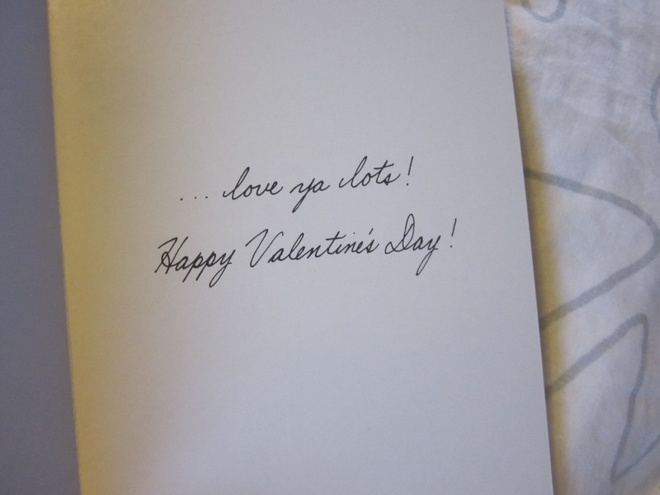 ... love ya lots!
Happy Valentine's Day!